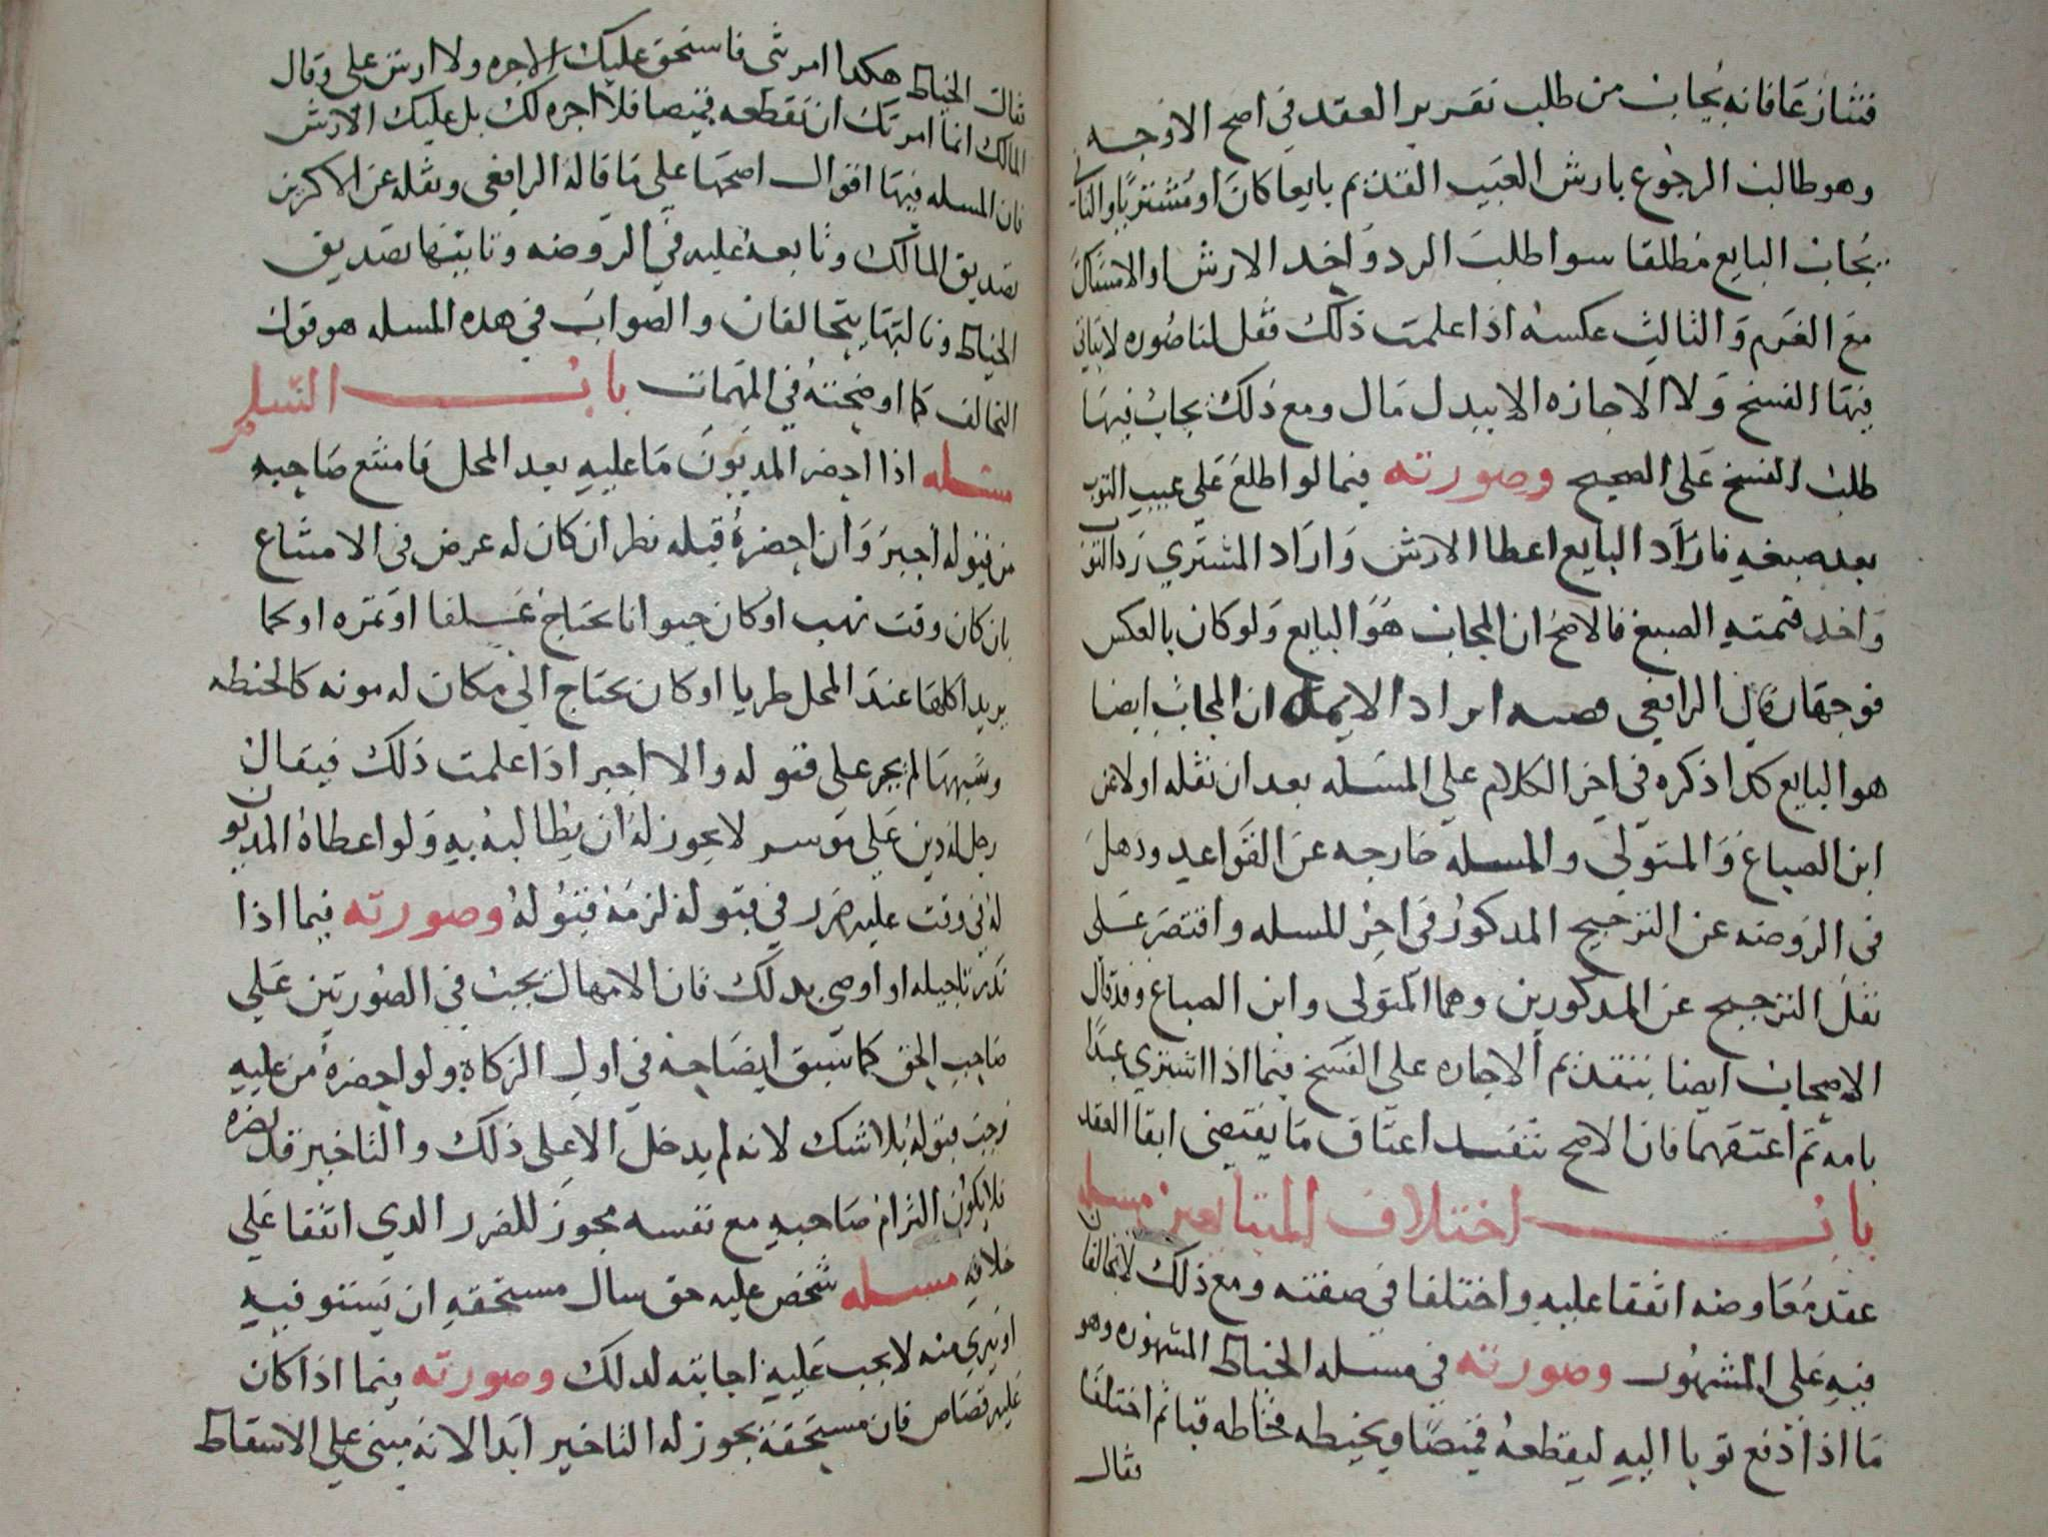 فتنازعا فانه يجاب من طلب تقرير العقد في اصح الاوجه
وهو طالب الرجوع بارش العيب القديم بايعا كان او مشتريا والثاني
يجاب البايع مطلقا سوا طلب الرد واخد الارش او الامساك
مع الغرم والثالث عكسه اذا علمت ذلك فقل لنا صوره لا ياتي
فيها الفسخ ولا الاجازه الا ببدل مال ومع ذلك يجاب فيها
طلب الفسخ على الصحيح وصورته فيما لو اطلع على عيب الثوب
بعد صبغه فاراد البايع اعطا الارش واراد المشتري رد الثوب
واخد قيمته الصبغ فالاصح ان المجاب هو البايع ولو كان بالعكس
فوجهان قال الرافعي ايراد الايمه ان المجاب ايضا
هو البايع كدا ذكره في اخر الكلام على المسله بعد ان نقله اولا عن
ابن الصباغ والمتولي والمسله خارجه عن القواعد ودهل
في الروضه عن الترجيح المدكور في اخر المسله واقتصر على
نقل الترجيح عن المدكورين وهما المتولي وابن الصباغ وقد قال
الاصحاب ايضا بتقديم الاجاره على الفسخ فيما اذا اشترى عبدا
بامه ثم اعتقهما فان الاصح تنفيد اعتاق ما يقتضي ابقا العقد
باب اختلاف المتبايعين مسله
عقد معاوضه اتفقا عليه واختلفا في صفته ومع ذلك لا يتحالفان
فيه على المشهور وصورته في مسله الخياط المشهوره وهو
ما اذا دفع ثوبا اليه ليقطعه قميصا ويخيطه فخاطه قبا ثم اختلفا
فقال
فقال الخياط هكدا امرتني فاستحق عليك الاجره ولا ارش علي وقال
المالك انما امرتك ان تقطعه قميصا فلا اجره لك بل عليك الارش
فان المسله فيها اقوال اصحها على ما قاله الرافعي ونقله عن الاكثرين
تصديق المالك وتابعه عليه في الروضه وثانيها تصديق
الخياط وثالثها يتحالفان والصواب في هده المسله هو قول
التحالف كما اوضحته في المهمات باب السلم
مسله اذا احضر المديون ما عليه بعد المحل فامتنع صاحبه
من قبوله اجبر وان احضره قبله نظر ان كان له غرض في الامتناع
بان كان وقت نهب او كان حيوانا يحتاج علفا او ثمره او لحما
يريد اكلها عند المحل طريا او كان يحتاج الى مكان له مونه كالحنطه
وشبهها لم يجبر على قبوله والا اجبر اذا علمت ذلك فيقال
رجل له دين على موسر لا يجوز له ان يطالبه به ولو اعطاه المديون
له في وقت عليه ضرر في قبوله لزمه قبوله وصورته فيما اذا
نذر تاجيله او اوصى بدلك فان الامهال يجب في الصورتين على
صاحب الحق كما سبق ايضاحه في اول الزكاة ولو احضره من عليه
وجب قبوله بلا شك لانه لم يدخل الا على ذلك والتاخير قد يضره
فلا يكون التزام صاحبه مع نفسه مجوز للضرر الدي اتفقا على
خلافه مسله شخص عليه حق سال مستحقه ان يستوفيه
او يبري منه لا يجب عليه اجابته لدلك وصورته فيما اذا كان
عليه قصاص فان مستحقه يجوز له التاخير ابدا لانه مبني على الاسقاط